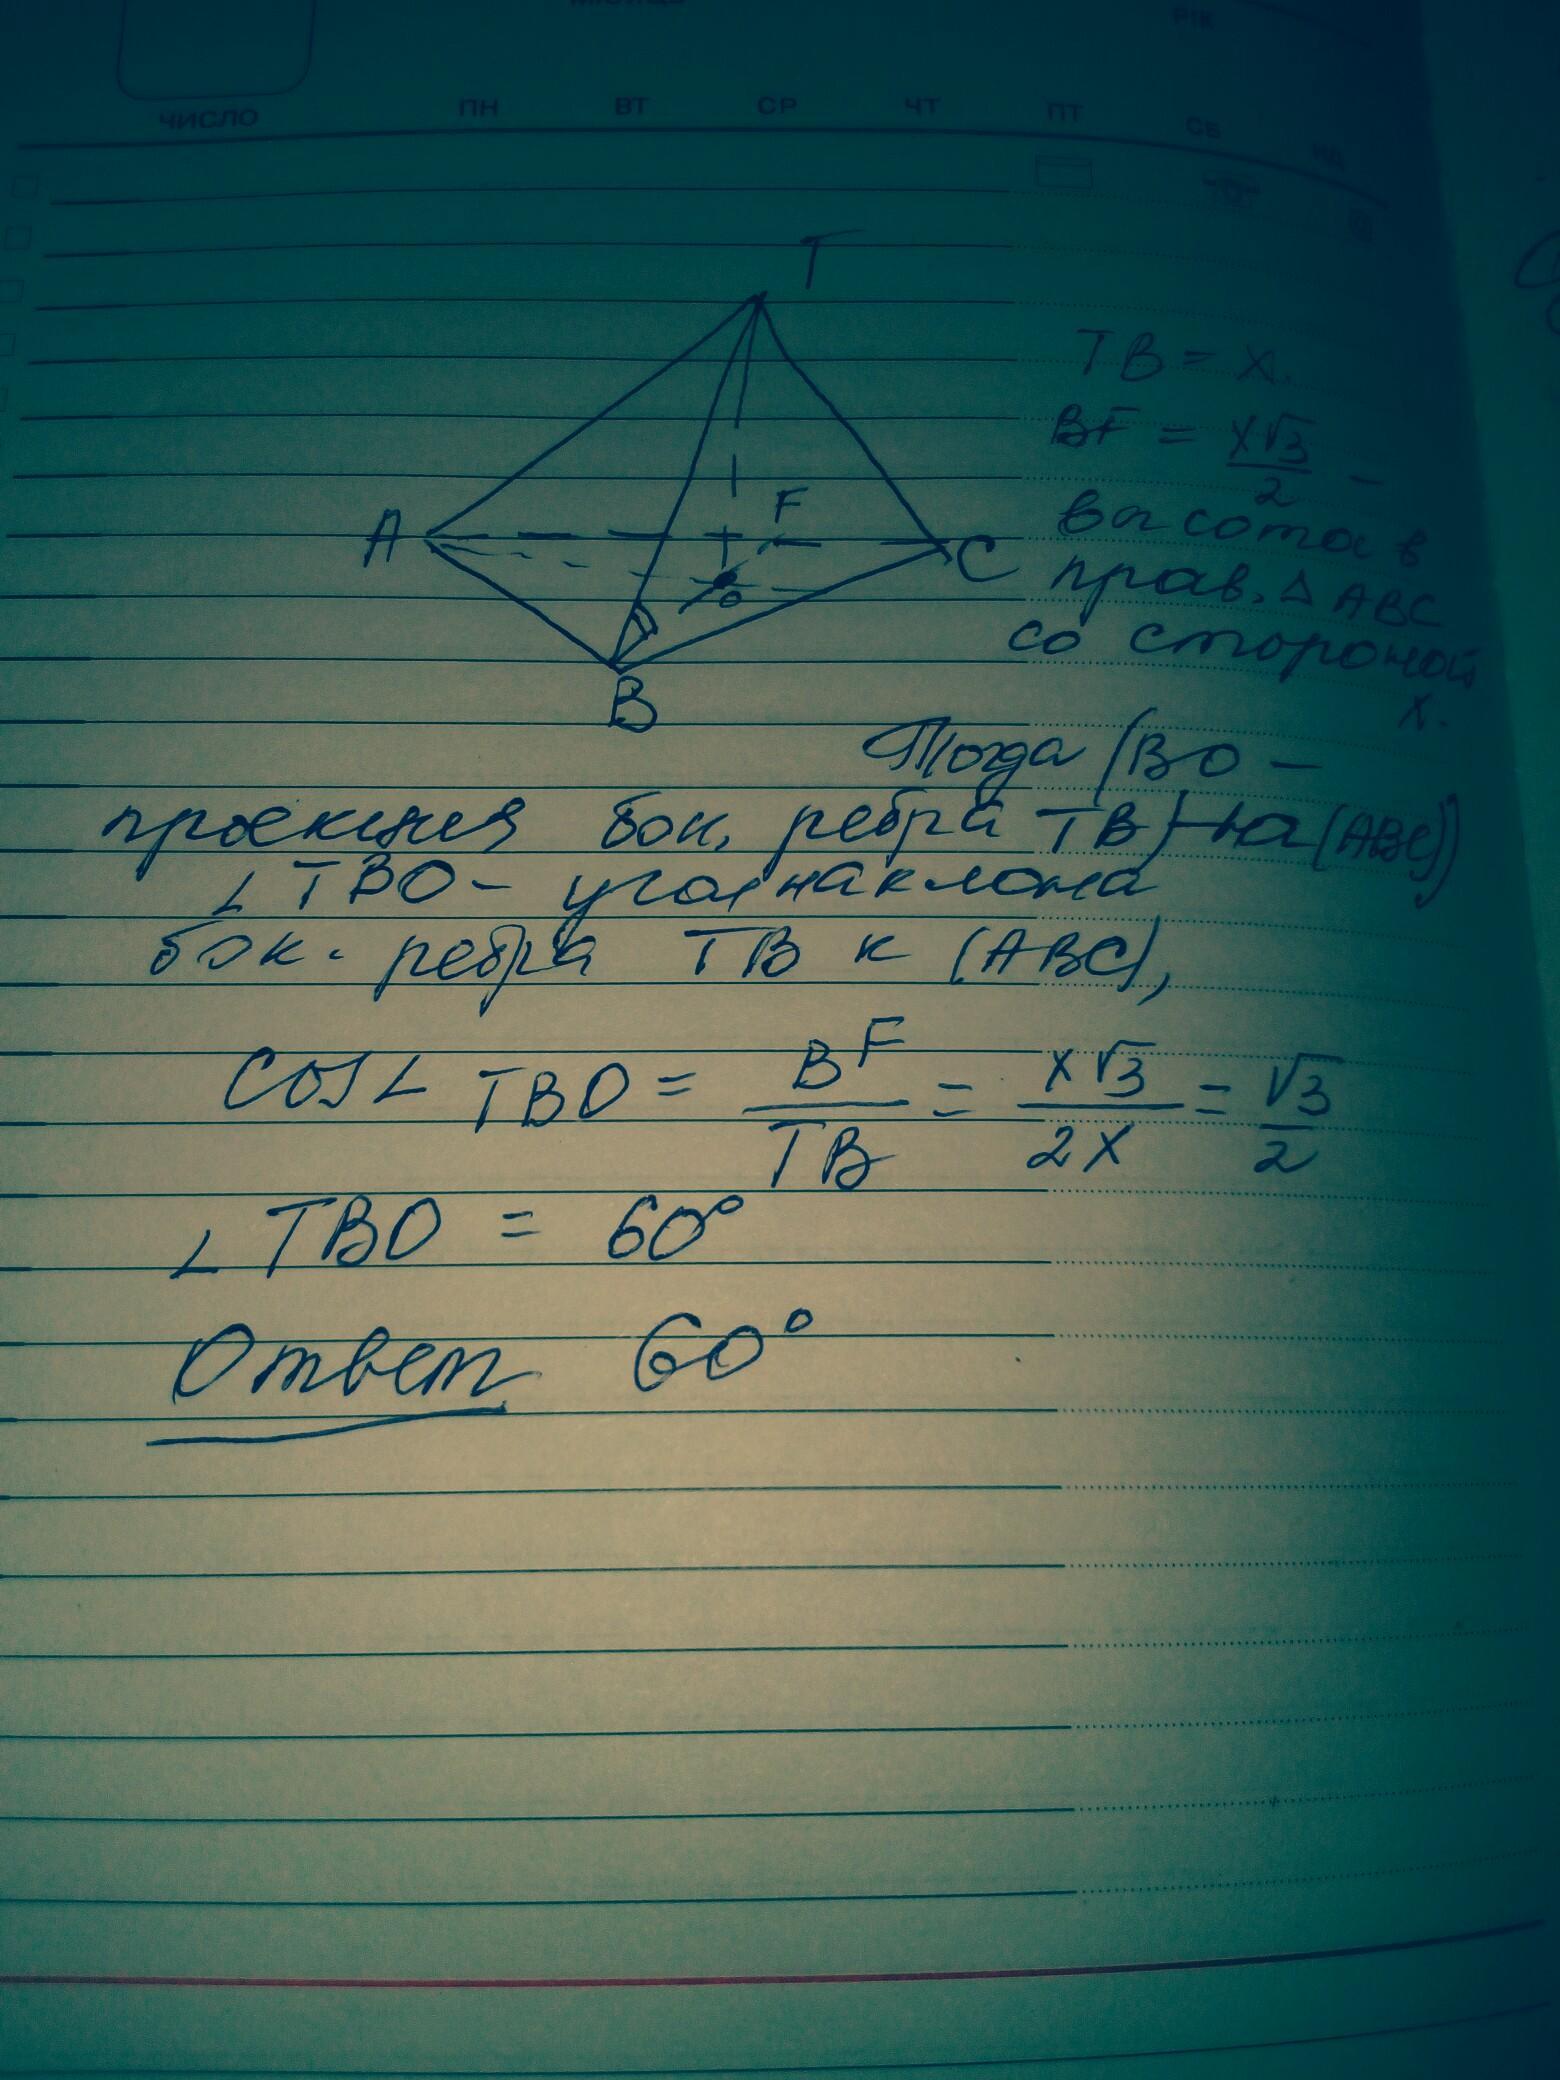 РІК
ЧИСЛО ПН ВТ СР ЧТ ПТ СБ НД
T
A
F
C
O
B
TB = x.
BF = x√3/2 –
высота в
прав. △ ABC
со стороной
x.
Тогда (BO –
проекция бок. ребра TB) на (ABC))
∠ TBO – угол наклона
бок. ребра TB к (ABC),
cos∠ TBO = BF/TB = x√3/2x = √3/2
∠ TBO = 60°
Ответ 60°